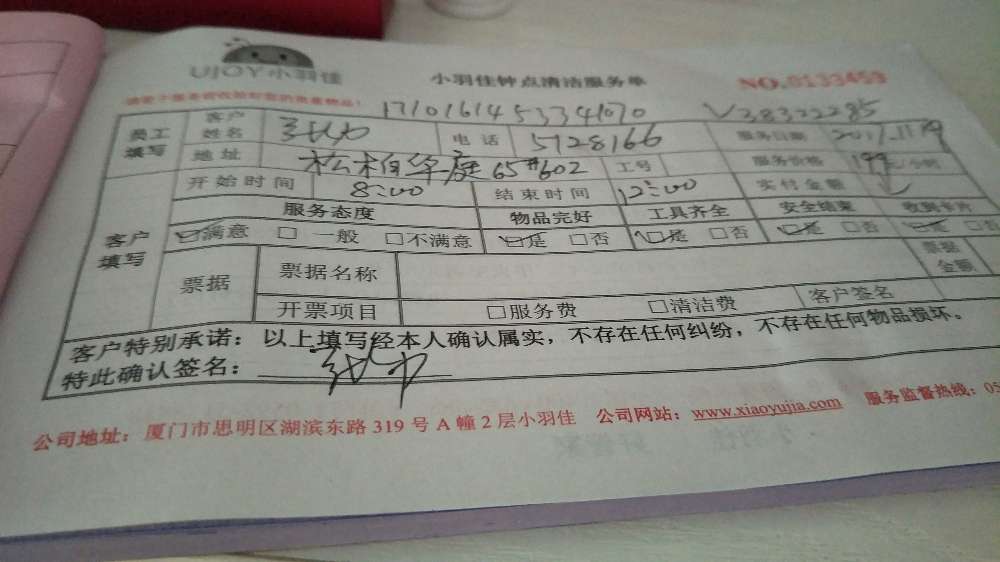 UJOY小羽佳
小羽佳钟点清洁服务单
NO.0133459
17101614533441070 V38322285
员工填写 客户姓名 电话 5728166 服务日期 2017.11.19
地址 松柏华庭65#602 工号 服务价格 小时
客户填写 开始时间 8:00 结束时间 12:00 实付金额
服务态度 物品完好 工具齐全 安全结束 收到卡片
☑满意 □一般 □不满意 ☑是 □否 ☑是 □否 ☑是 □否 ☑是 □否
票据 票据名称 票据金额
开票项目 □服务费 □清洁费 客户签名
客户特别承诺:以上填写经本人确认属实,不存在任何纠纷,不存在任何物品损坏。
特此确认签名:
公司地址:厦门市思明区湖滨东路319号A幢2层小羽佳 公司网站:www.xiaoyujia.com 服务监督热线:05